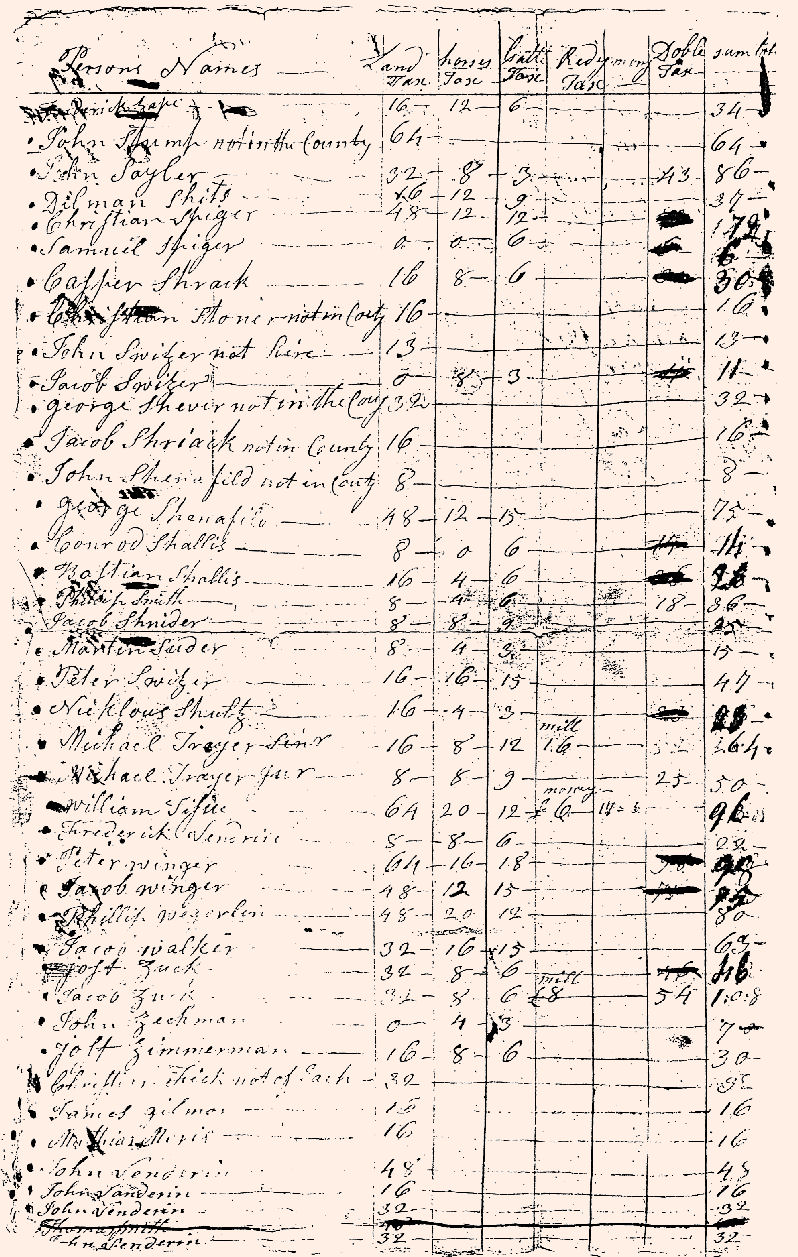 Persons Names Land Tax horses Tax Cattle Tax Redy mony Tax Doble Tax sum
16 12 6 34
John Stump not in the County 64 64
John Sayler 32 8 3 43 86
Dilman Shits 16 12 9 37
Christian Spiger 48 12 12
Samuel Spiger 0 0 6 6
Casper Shrack 16 8 6 30
Christian Stoner not in Couty 16 16
John Switzer not hire 13 13
Jacob Switzer 0 8 3 11
george Shever not in the Couy 32 32
Jacob Shriack not in County 16 16
John Shenafild not in Couty 8 8
george Shenafild 48 12 15 75
Conrod Shallis 8 0 6 14
Bastian Shallis 16 4 6
Philip Smith 8 4 6 18 36
Jacob Shnider 8 8 9 25
Martin Suder 8 4 3 15
Peter Switzer 16 16 15 47
Nicklous Shultz 16 4 3
Michael Trayer Sinr 16 8 12 mill 16
Michael Trayer Jur 8 8 9 25 50
william 64 20 12 mony £6 96
Frederick 8 8 6 22
Peter winger 64 16 18
Jacob winger 48 12 15
Phillip 48 20 12 80
Jacob walker 32 16 15 63
Jost Zuck 32 8 6 46
Jacob Zuck 32 8 6 mill £8 54 1:0:8
John Zechman 0 4 3 7
Jost Zimmerman 16 8 6 30
not of Each 32 32
James gilmor 16 16
Mathias 16 16
John Senderin 48 48
John Sanderin 16 16
John Senderin 32 32
Thomas Smith
John Senderin 32 32